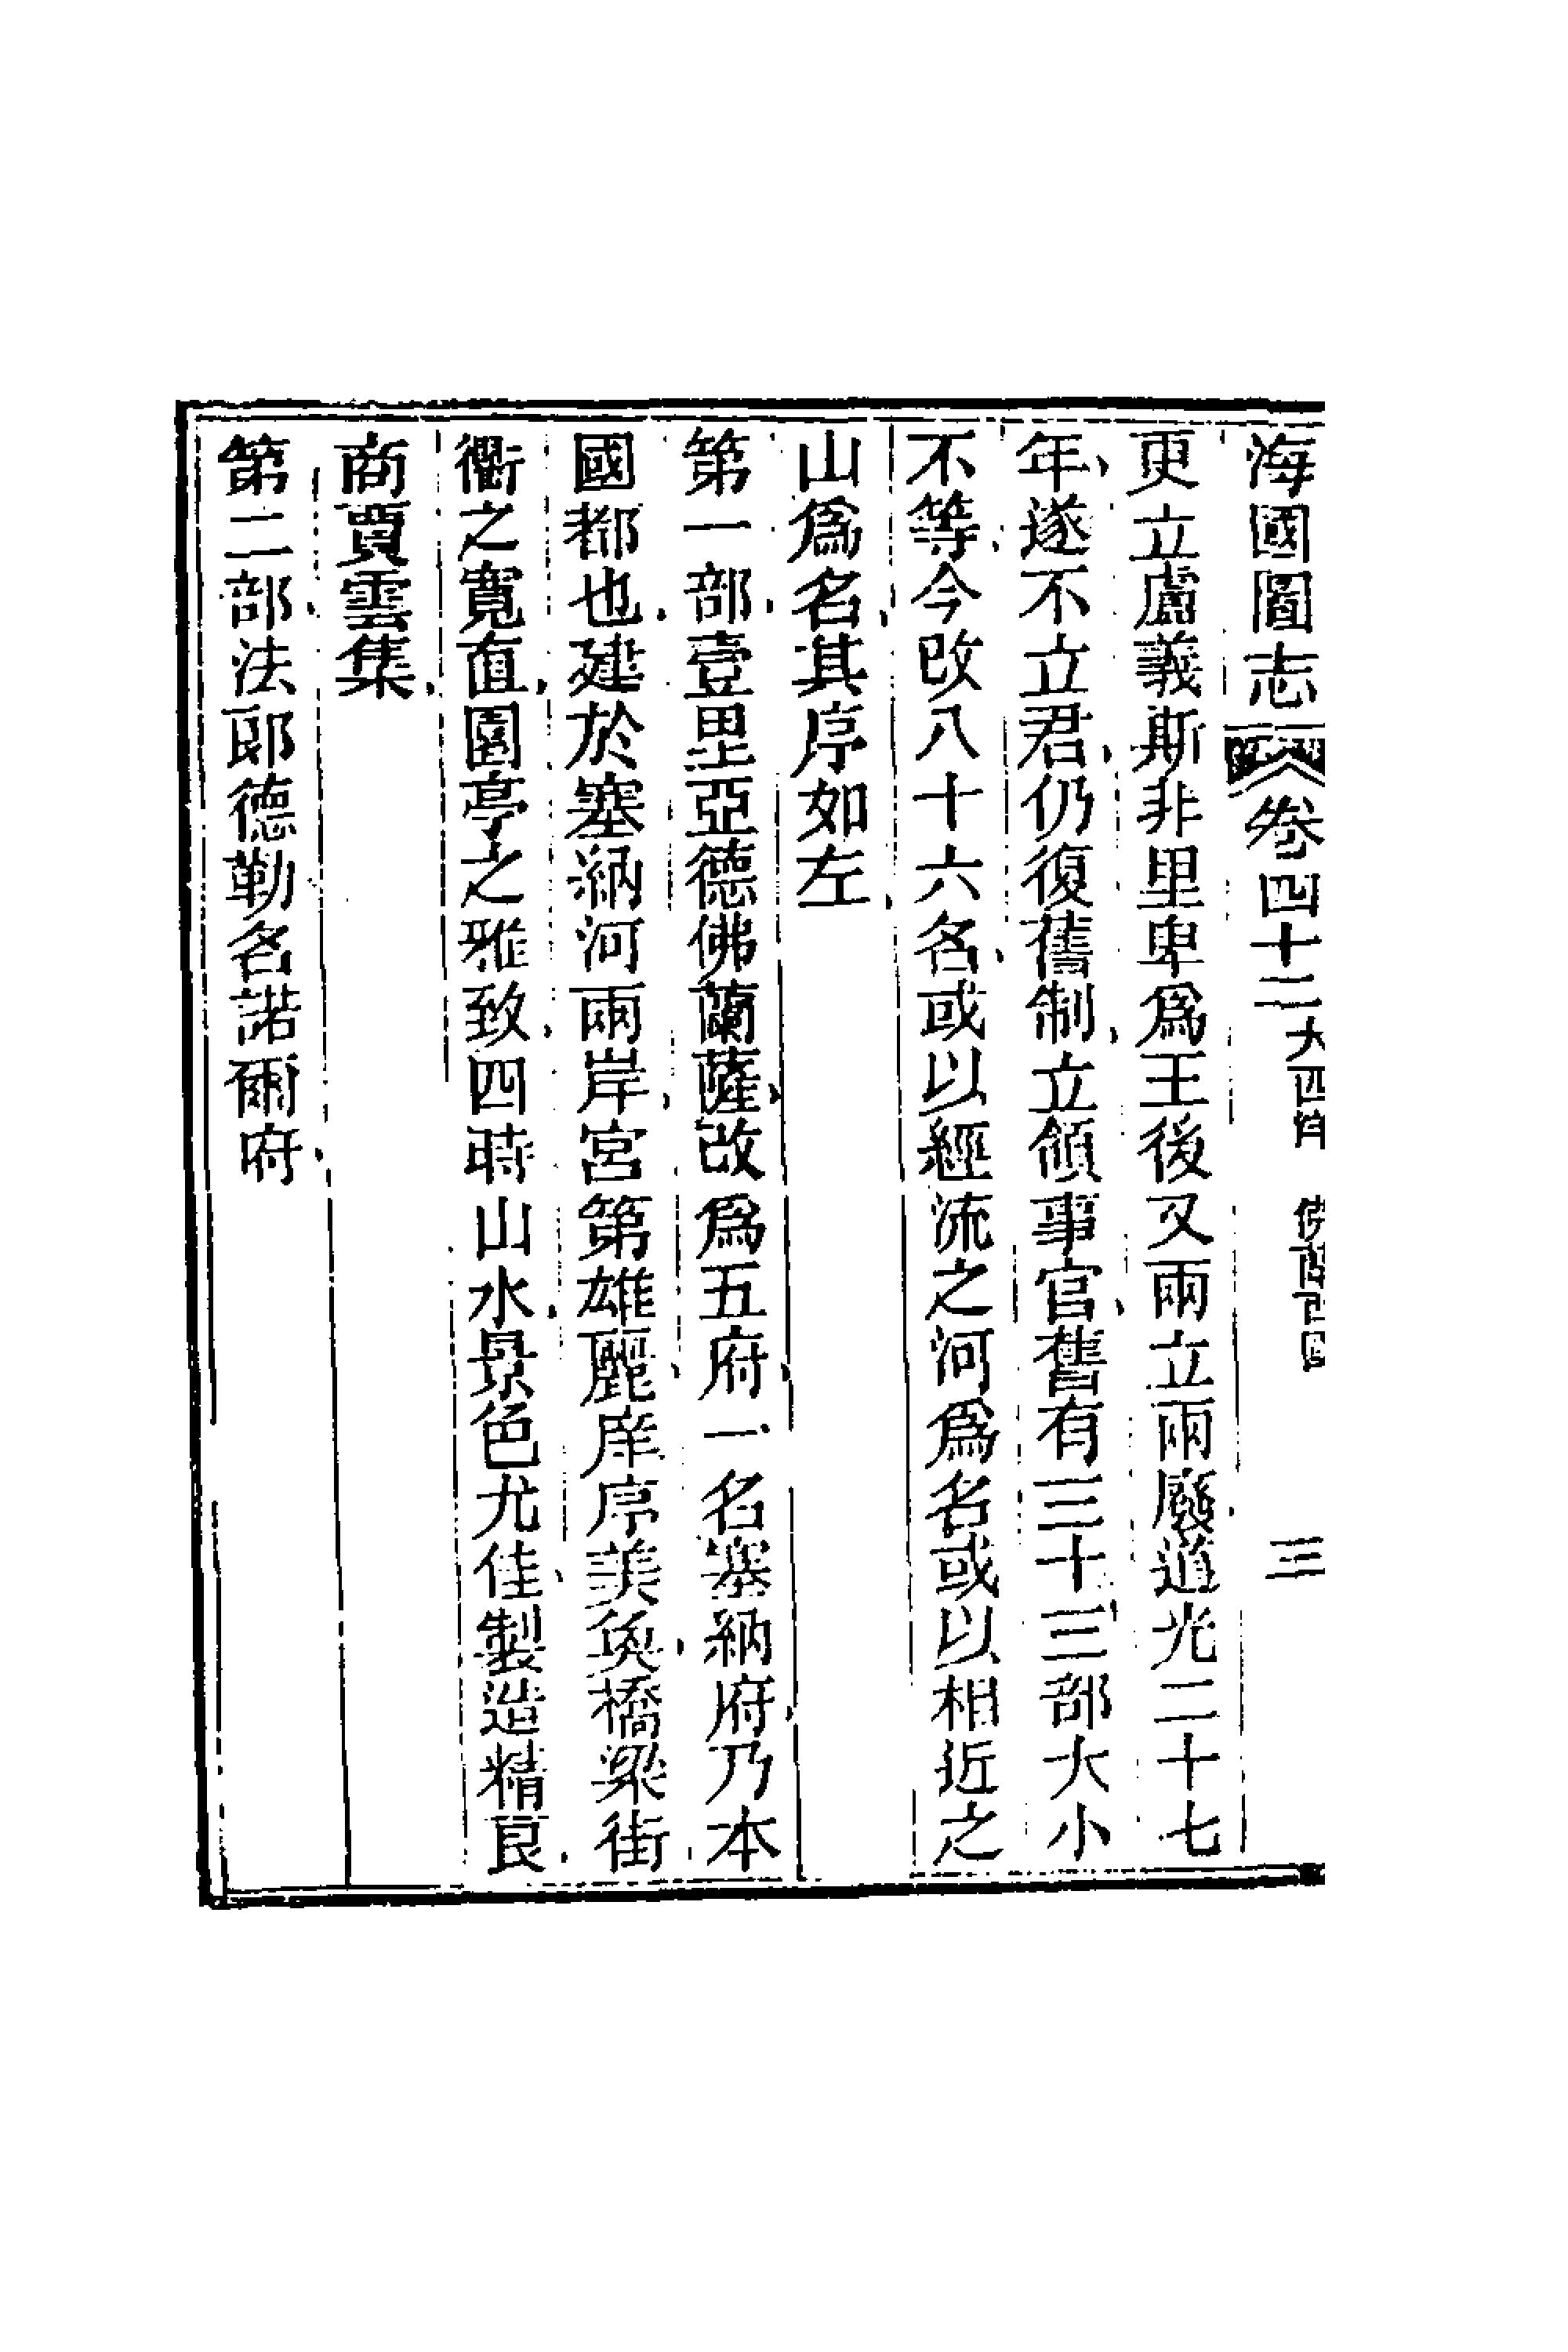 海國圖志 卷四十二 大西洋 佛蘭西國 三
更立盧義斯非里卑爲王後又兩立兩廢道光二十七
年遂不立君仍復舊制立領事官舊有三十三部大小
不等今改八十六名或以經流之河爲名或以相近之
山爲名其序如左
第一部壹里亞德佛蘭薩改爲五府一名塞納府乃本
國都也建於塞納河兩岸宮第雄麗庠序美奐橋梁街
衢之寬直園亭之雅致四時山水景色尤佳製造精良
商賈雲集
第二部法郎德勒名諾爾府